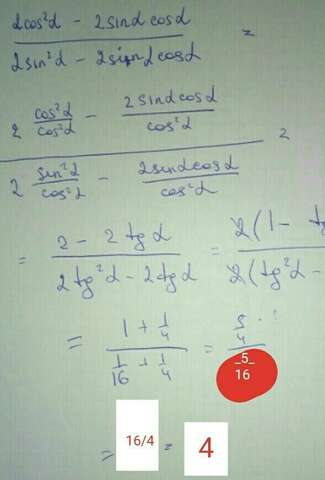 2cos²α - 2sinα cosα
2sin²α - 2sinα cosα
=
2 cos²α/cos²α - 2sinαcosα/cos²α
2 sin²α/cos²α - 2sinαcosα/cos²α
=
= 2 - 2tgα / 2tg²α - 2tgα = 2(1 - tg / 2(tg²α -
= 1 + 1/4 / 1/16 + 1/4 = 5/4 / 5/16
= 16/4 = 4